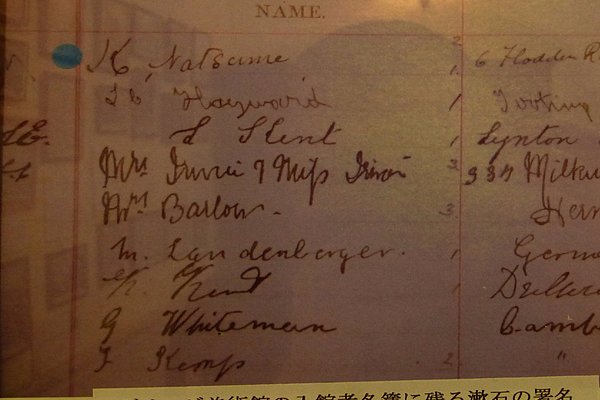 NAME.
K. Natsume 2 1. 6 Flodden R
Hayward 1 Tooting
Kent 1 Lynton
Mrs Irwin & Miss Irwin 2 334 Milk
Mrs Barlow. 3. Hern
M. Landenberger. 1 Germ
K. 1
G Whiteman 1 Camb
F Kemp 2 "
美術館の入館者名簿に残る漱石の署名